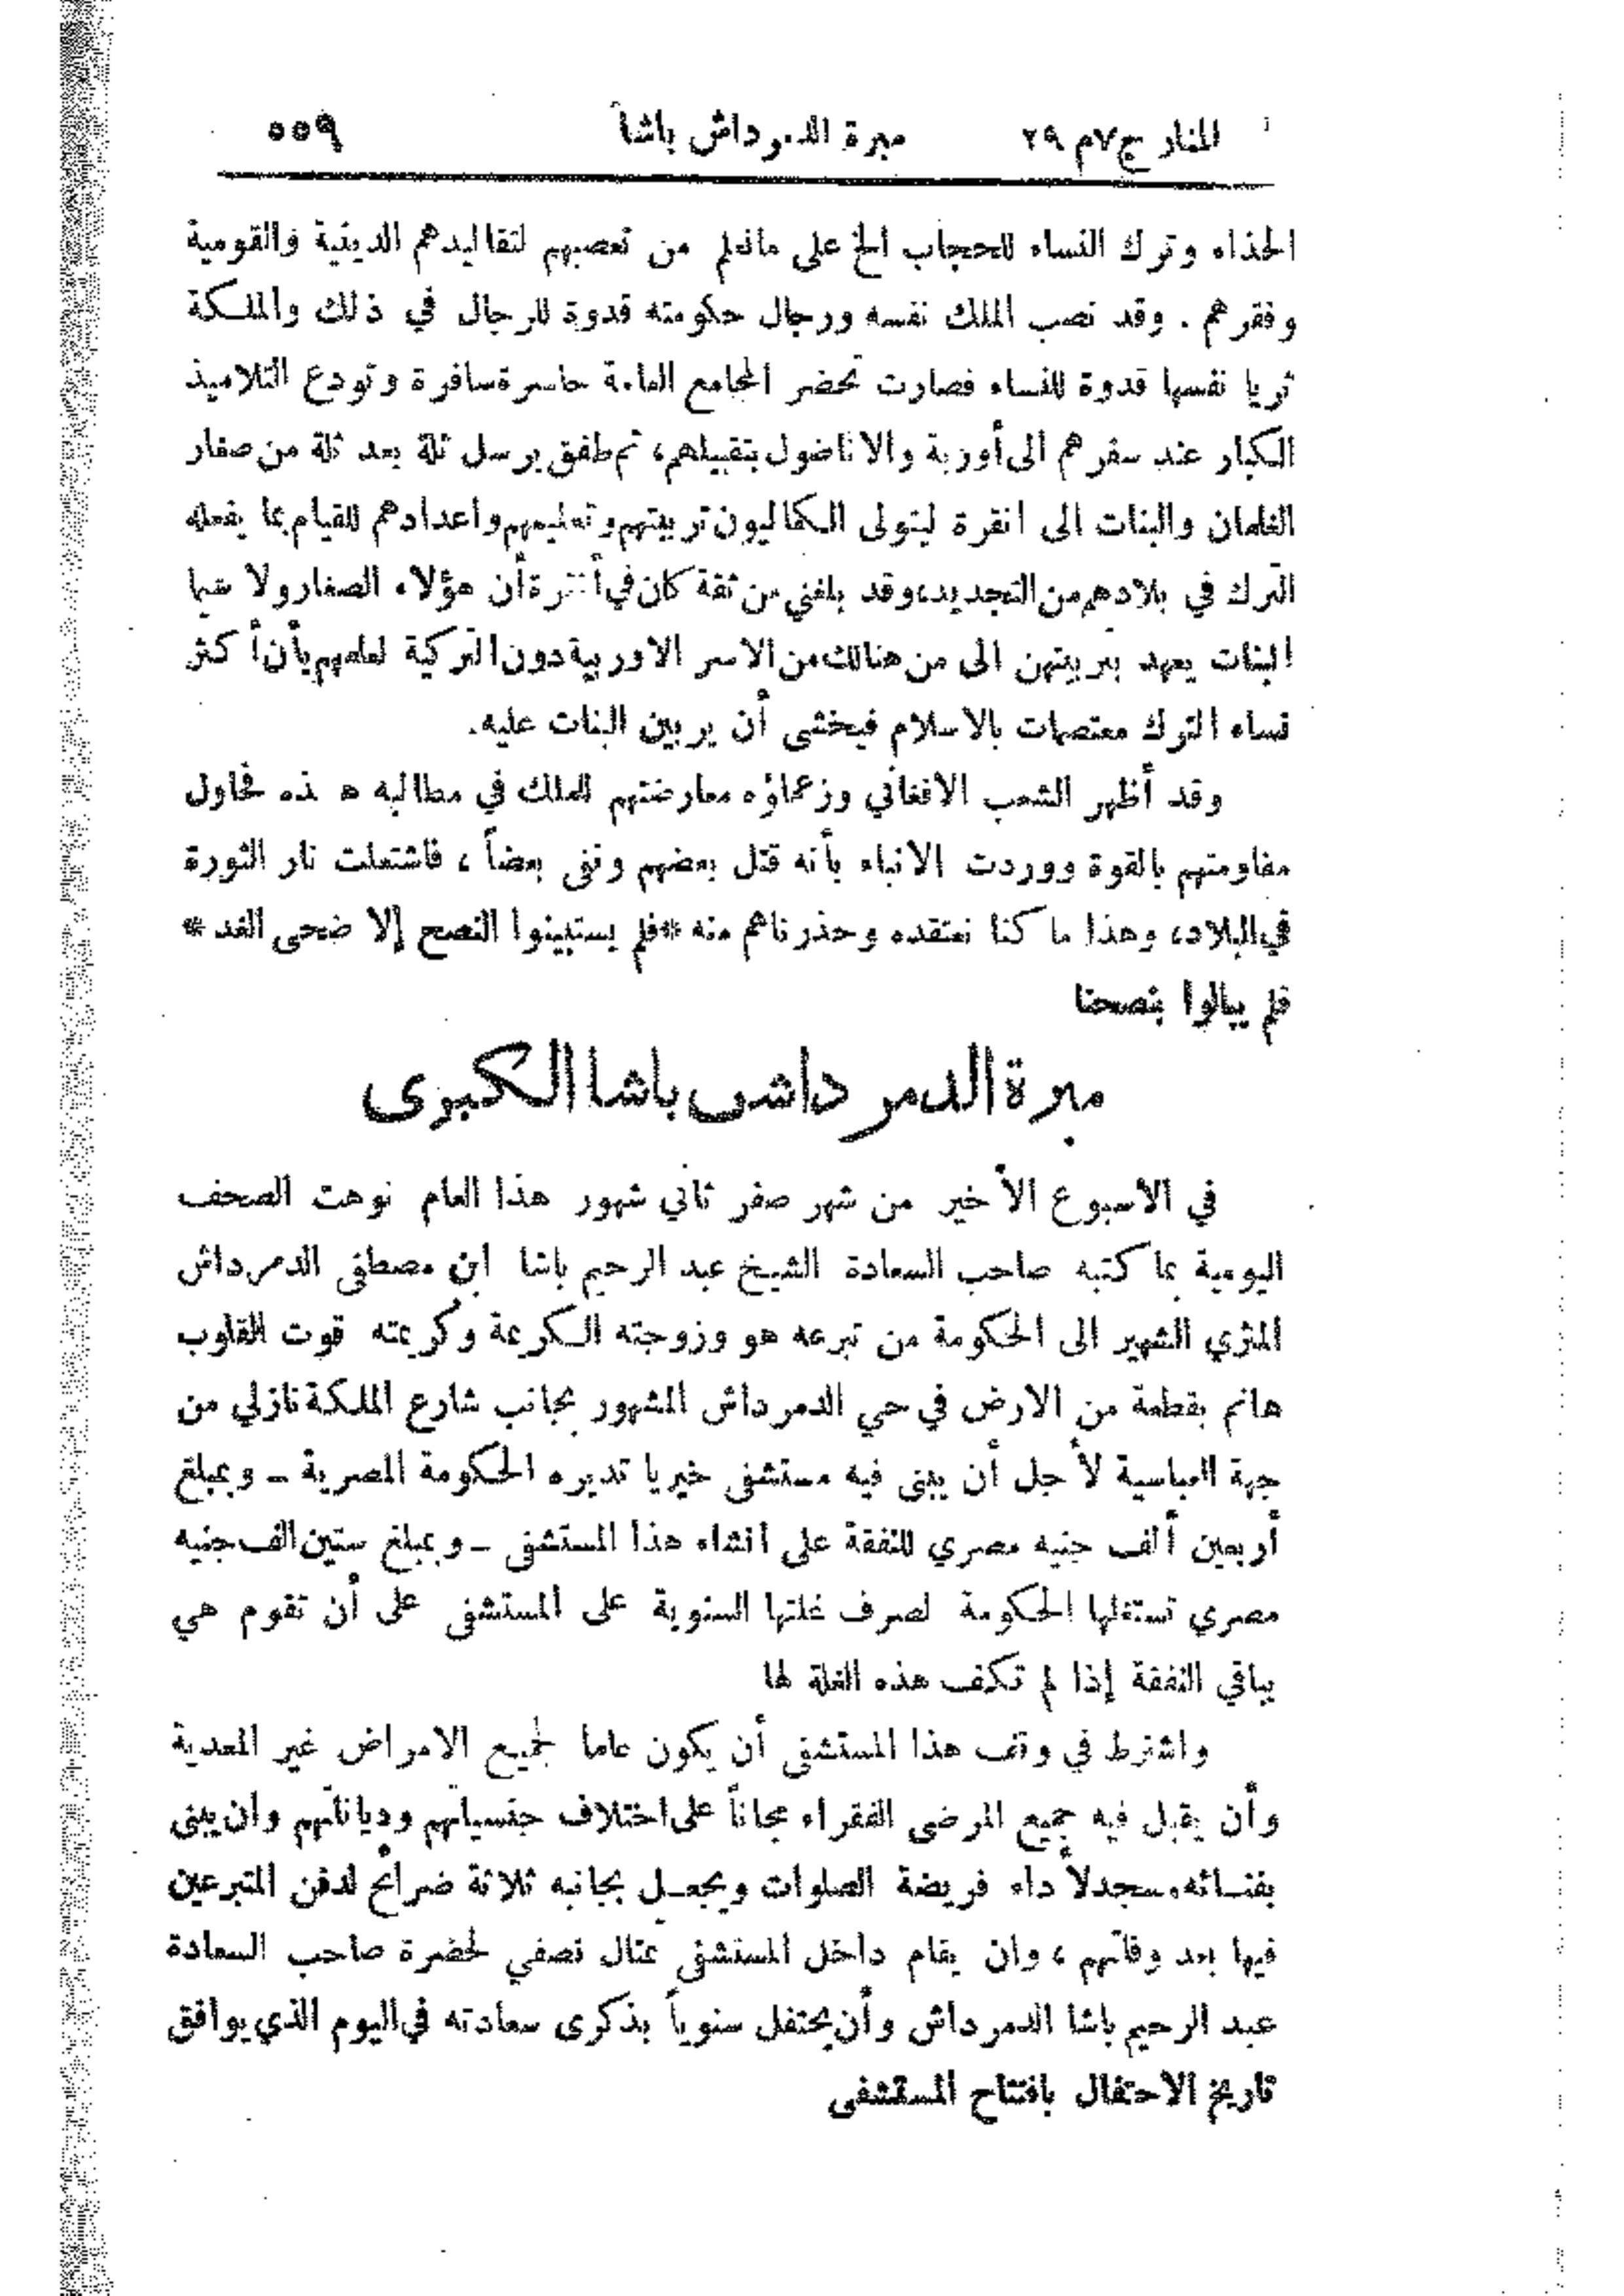 المنار ج٧ م ٢٩ مبرة الدمرداش باشا ٥٥٩
الحذاء وترك النساء للحجاب الخ على مانعلم من تعصبهم لتقاليدهم الدينية والقومية
وفقرهم . وقد نصب الملك نفسه ورجال حكومته قدوة للرجال في ذلك والملكة
ثريا نفسها قدوة للنساء فصارت تحضر المجامع العامة حاسرة سافرة وتودع التلاميذ
الكبار عند سفرهم الى أوربة والاناضول بتقبيلهم، ثم طفق يرسل ثلة بعد ثلة من صغار
الغلمان والبنات الى انقرة ليتولى الكماليون تربيتهم وتعليمهم واعدادهم للقيام بما يفعله
الترك في بلادهم من التجديد، وقد بلغني من ثقة كان في أنقرة أن هؤلاء الصغار ولا سيما
البنات يعهد بتربيتهن الى من هنالك من الاسر الاوربية دون التركية لعلمهم بأن أكثر
نساء الترك معتصمات بالاسلام فيخشى أن يربين البنات عليه.
وقد أظهر الشعب الافغاني وزعماؤه معارضتهم للملك في مطالبه هذه فحاول
مقاومتهم بالقوة ووردت الانباء بأنه قتل بعضهم ونفى بعضاً ، فاشتعلت نار الثورة
في البلاد، وهذا ما كنا نعتقده وحذرناهم منه *فلم يستبينوا النصح إلا ضحى الغد *
فلم يبالوا بنصحنا
مبرة الدمرداش باشا الكبرى
في الاسبوع الأخير من شهر صفر ثاني شهور هذا العام نوهت الصحف
اليومية بما كتبه صاحب السعادة الشيخ عبد الرحيم باشا ابن مصطفى الدمرداش
المثري الشهير الى الحكومة من تبرعه هو وزوجته الكريمة وكريمته قوت القلوب
هانم بقطعة من الارض في حي الدمرداش المشهور بجانب شارع الملكة نازلي من
جهة العباسية لأجل أن يبنى فيه مستشفى خيريا تديره الحكومة المصرية ــ وبمبلغ
أربعين ألف جنيه مصري للنفقة على انشاء هذا المستشفى ــ وبمبلغ ستين الف جنيه
مصري تستغلها الحكومة لصرف غلتها السنوية على المستشفى على أن تقوم هي
بباقي النفقة إذا لم تكف هذه الغلة لها
واشترط في وقف هذا المستشفى أن يكون عاما لجميع الامراض غير المعدية
وأن يقبل فيه جميع المرضى الفقراء مجاناً على اختلاف جنسياتهم ودياناتهم وان يبنى
بفنائه مسجد لأداء فريضة الصلوات ويجعل بجانبه ثلاثة ضرائح لدفن المتبرعين
فيها بعد وفاتهم ، وان يقام داخل المستشفى تمثال نصفي لحضرة صاحب السعادة
عبد الرحيم باشا الدمرداش وأن يحتفل سنوياً بذكرى سعادته في اليوم الذي يوافق
تاريخ الاحتفال بافتتاح المستشفى